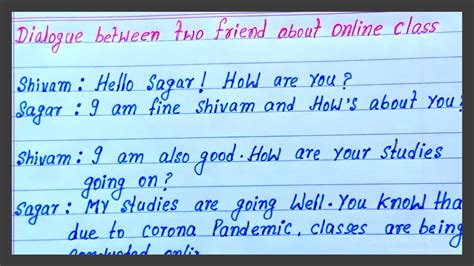 Dialogue between two friend about online class
Shivam : Hello Sagar! How are you?
Sagar : I am fine Shivam and How's about you?
Shivam : I am also good. How are your studies
going on?
Sagar : My studies are going well. You know tha
due to corona Pandemic, classes are being
conducted onli